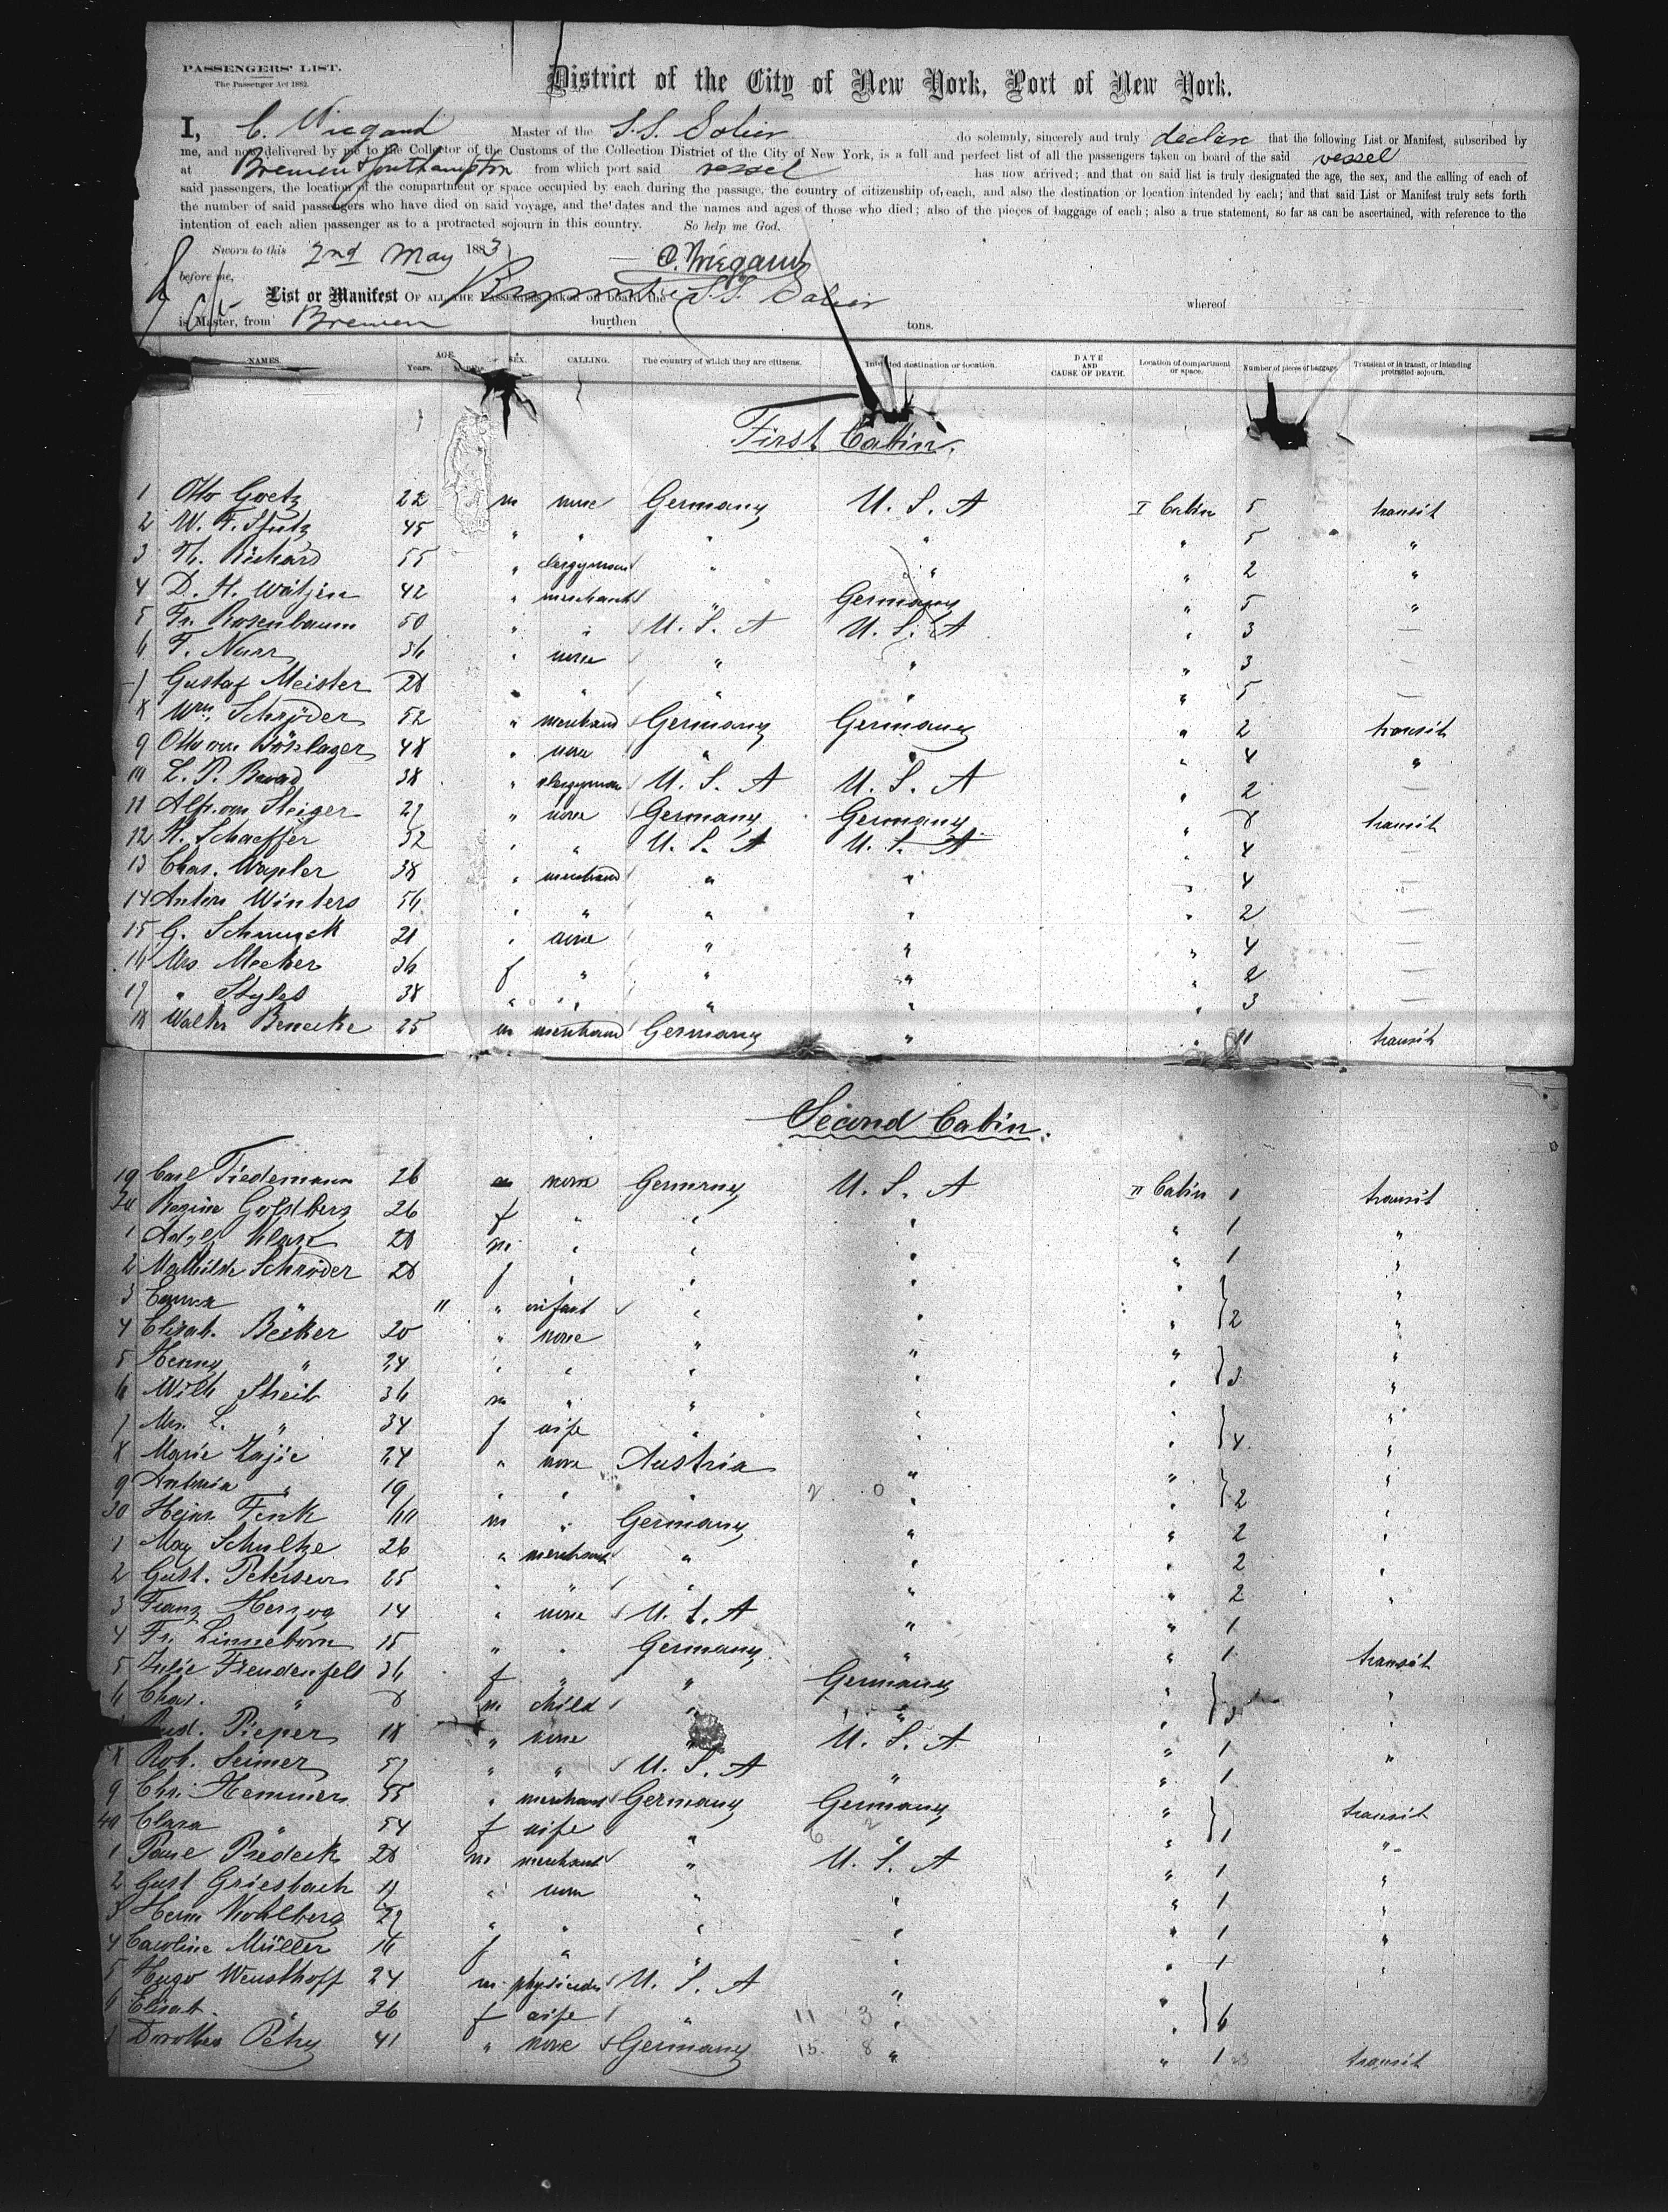 PASSENGERS' LIST.
The Passenger Act 1882.
District of the City of New York, Port of New York.
I, C. Wiegand Master of the S.S. Salier do solemnly, sincerely and truly declare that the following List or Manifest, subscribed by
me, and now delivered by me to the Collector of the Customs of the Collection District of the City of New York, is a full and perfect list of all the passengers taken on board of the said vessel
at Bremen & Southampton from which port said vessel has now arrived; and that on said list is truly designated the age, the sex, and the calling of each of
said passengers, the location of the compartment or space occupied by each during the passage, the country of citizenship of each, and also the destination or location intended by each; and that said List or Manifest truly sets forth
the number of said passengers who have died on said voyage, and the dates and the names and ages of those who died; also of the pieces of baggage of each; also a true statement, so far as can be ascertained, with reference to the
intention of each alien passenger as to a protracted sojourn in this country. So help me God.
Sworn to this 2nd May 1883
C. Wiegand
before me,
List or Manifest OF ALL THE PASSENGERS taken on board the S.S. Salier whereof
is Master, from Bremen burthen tons.
NAMES. AGE. Years. Months. SEX. CALLING. The country of which they are citizens. Intended destination or location. DATE AND CAUSE OF DEATH. Location of compartment or space. Number of pieces of baggage. Transient or in transit, or intending protracted sojourn.
First Cabin.
1 Otto Goetz 22 m none Germany U. S. A I Cabin 5 transit
2 W. F. 45 " " " " " 5 "
3 Th. Richard 55 " clergyman " " " 2 "
4 D. H. Wätjen 42 " merchant " Germany " 5 "
5 Fr. Rosenbaum 50 " " U. S. A U. S. A " 3 —
6 F. 36 " none " " " 3 —
7 Gustaf Meister 28 " " " " " 5 —
8 Wm. Schröder 52 " merchand Germany Germany " 2 transit
9 Otto von Böselager 48 " none " " " 4 "
10 L. P. 38 " clergyman U. S. A U. S. A " 2 —
11 Alfr. von Steiger 27 " none Germany Germany " 8 transit
12 H. Schaeffer 32 " " U. S. A U. S. A " 4 —
13 Chas. Wapler 38 " merchand " " " 4 —
14 Anton Winters 56 " " " " " 2 —
15 G. Schmuck 21 " none " " " 4 —
16 Mrs. Meeker 36 f " " " " 2 —
17 " Styles 38 " " " " " 3 —
18 Walter Benecke 25 m merchand Germany " " 11 transit
Second Cabin.
19 Carl Tiedemann 26 m none Germany U. S. A II Cabin 1 transit
20 Regine Goldberg 26 f " " " " 1 "
1 Adolf 28 m " " " " 1 "
2 Mathilde Schröder 28 f " " " " "
3 Emma " 11 " infant " " " } 2 "
4 Elisab. Becker 20 " none " " " "
5 Henny " 24 " " " " " } 3 "
6 Wilh Streib 36 m " " " " "
7 Mrs. L. " 34 f wife " " " } 4 "
8 Marie Zajic 24 " none Austria " " "
9 Antonia " 19 " " " " " } 2 "
30 Heinr. Fink m " Germany " " 2 "
1 Max Schultze 26 " merchant " " " 2
2 Gust. Petersen 25 " " " " " 2 "
3 Franz Herzog 14 " none U. S. A " " 1
4 Fr. Linneborn 15 " " Germany " " 1 transit
5 Julie Freudenfels 36 f " " Germany " "
6 Chas. " 8 m child " " " } 3 "
Rud. Pieper 18 " none " U. S. A " 1 "
8 Rob. Seimer 57 " " U. S. A " " 1
9 Chr. Hemmer 55 " merchand Germany Germany " transit
40 Clara " 54 f wife " " " } 1 "
1 Paul Predeck 28 m merchant " U. S. A " 1 "
2 Gust Griesbach 17 " none " " " 1 "
3 Herm Kohlberg 27 " " " " " 1 "
4 Caroline Müller 16 f " " " " 1 "
5 Hugo Weusthoff 24 m physician U. S. A " "
6 Elisab. " 26 f wife " " " } 6
7 Dorothea Petry 41 " none Germany " " 1 transit